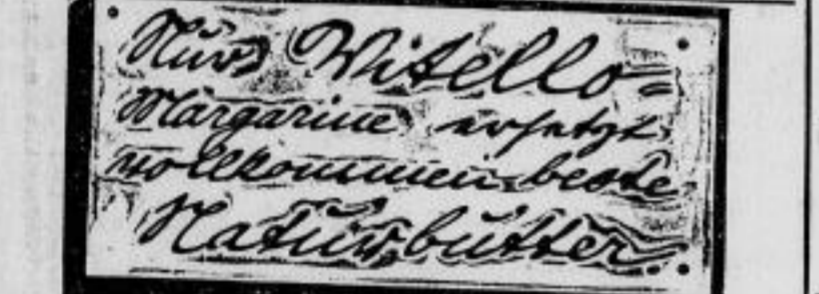 Nur Vitello-
Margarine ersetzt
vollkommen beste
Naturbutter.